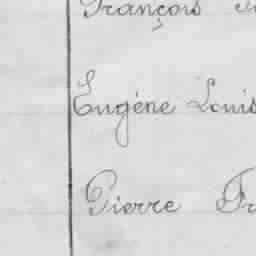 François
Eugéne Louis
Pierre Fr